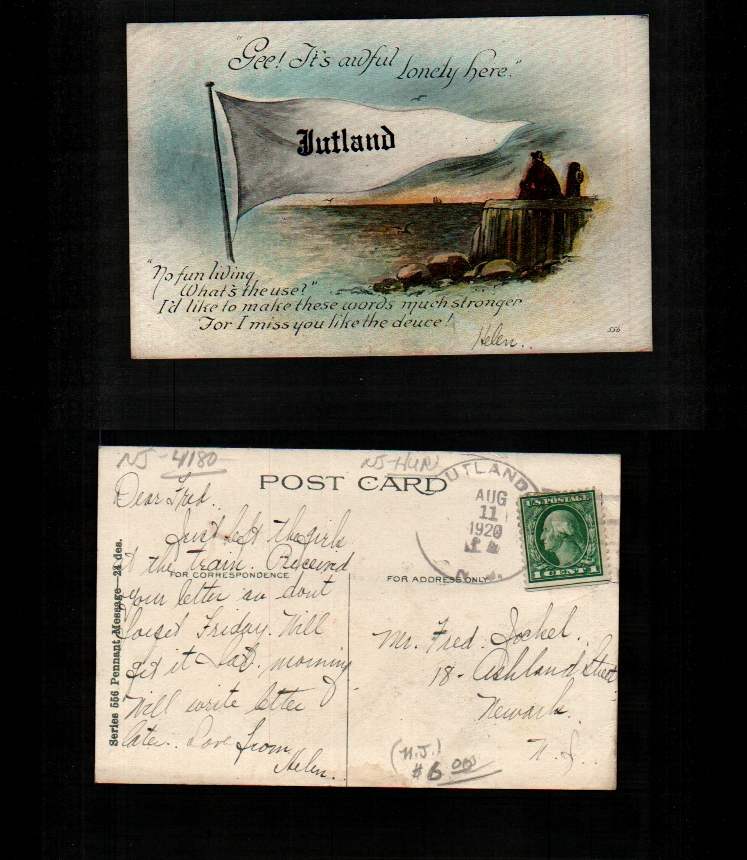 "Gee! It's awful lonely here."
Jutland
"No fun living
What's the use?"
I'd like to make these words much stronger
For I miss you like the deuce!
Helen.
556
NJ-4180
NJ-HUN
POST CARD
UTLAND
AUG
11
1920
N.J.
U.S. POSTAGE
1 CENT 1
Series 556 Pennant Message—24 des.
FOR CORRESPONDENCE
FOR ADDRESS ONLY
Dear Fred.
Just left the girls
at the train. Received
your letter so dont
forget Friday. Will
get it Sat. morning
Will write letter
later. Love from
Helen.
Mr. Fred. Jockel.
18- Ashland Street
Newark.
N.J.
(N.J.)
$6.00